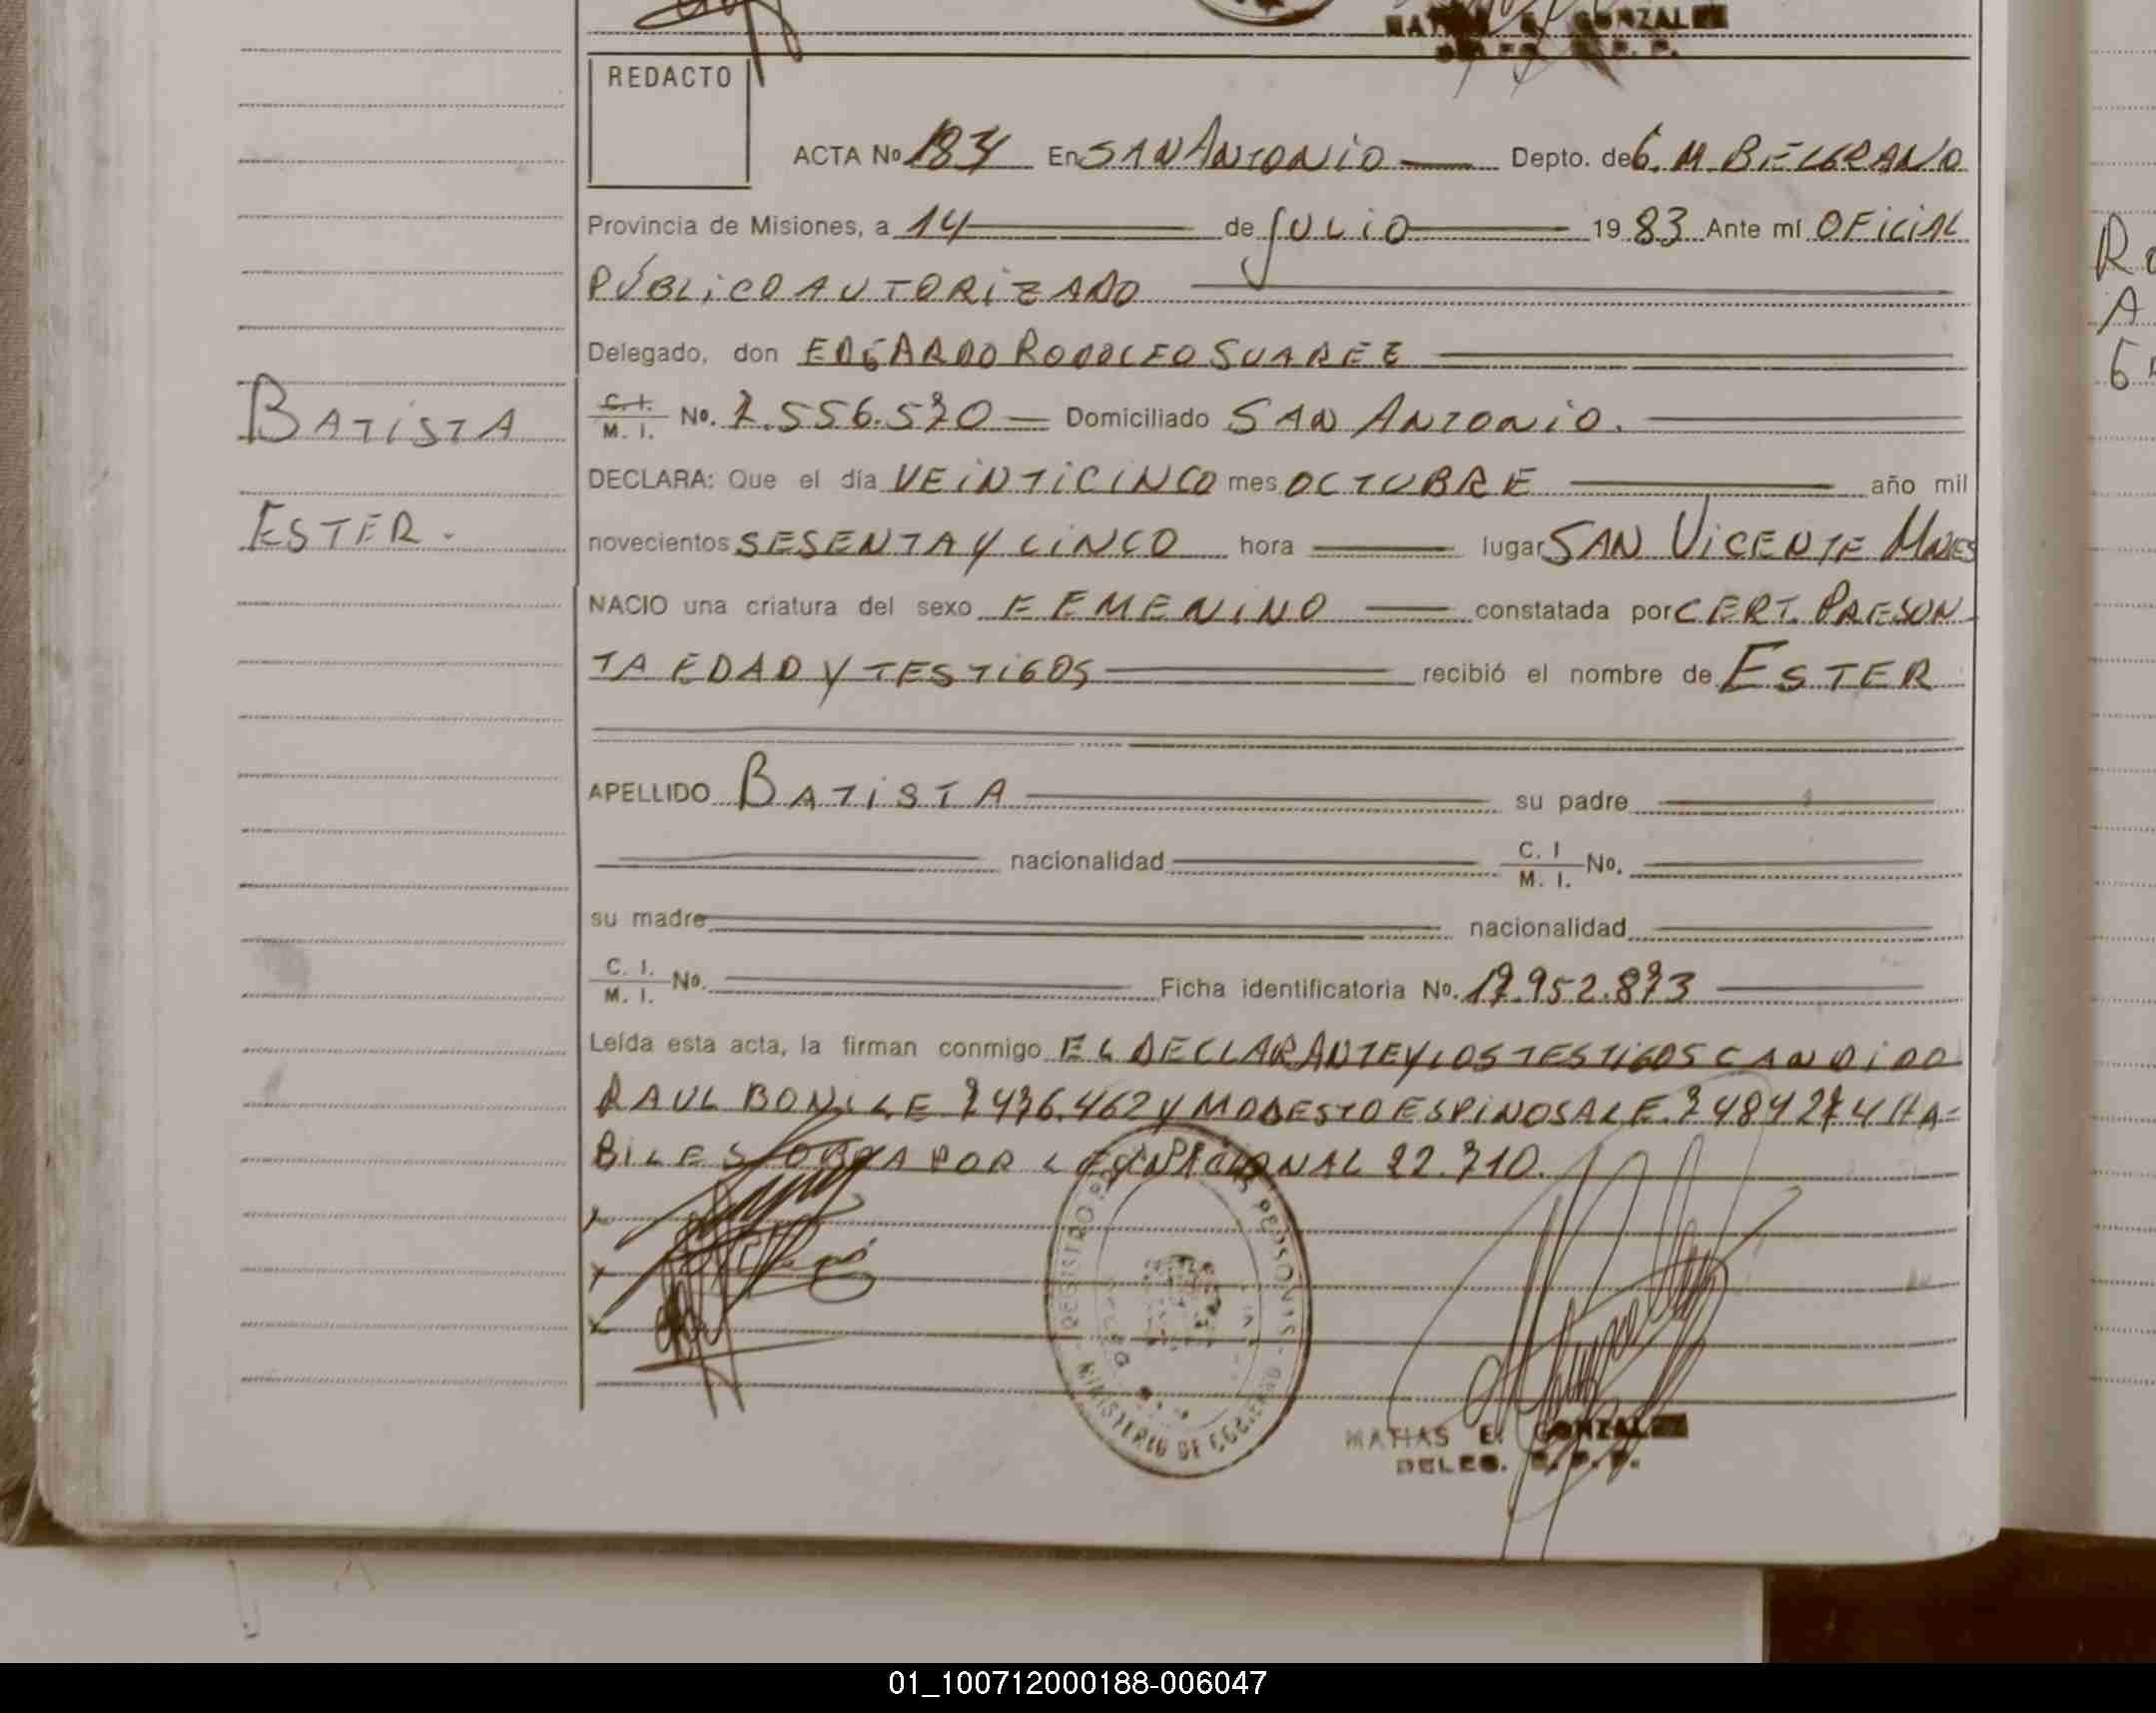 REDACTO
ACTA No 184 En SAN ANTONIO Depto. de G. M. BELGRANO
Provincia de Misiones, a 14 de JULIO 19 83 Ante mí OFICIAL
PÚBLICO AUTORIZADO
Delegado, don EDGARDO RODOLFO SUAREZ
C. I. / M. I. No. 7.556.570 Domiciliado SAN ANTONIO.
BATISTA
DECLARA: Que el día VEINTICINCO mes OCTUBRE año mil
ESTER.
novecientos SESENTA Y CINCO hora lugar SAN VICENTE MNES
NACIO una criatura del sexo FEMENINO constatada por CERT. PRESUN
TA EDAD Y TESTIGOS recibió el nombre de ESTER
APELLIDO BATISTA su padre
nacionalidad C. I / M. I. No.
su madre nacionalidad
C. I. / M. I. No. Ficha identificatoria No. 17.952.873
Leída esta acta, la firman conmigo EL DECLARANTE Y LOS TESTIGOS CANDIDO
RAUL BONI LE 7476.462 Y MODESTO ESPINOSA LE. 7484274 HA=
BILES OBRA POR LEY NACIONAL 22.710.
MINISTERIO DE GOBIERNO
MATIAS E. GONZALEZ
DELEG. R. P. P.
01_100712000188-006047